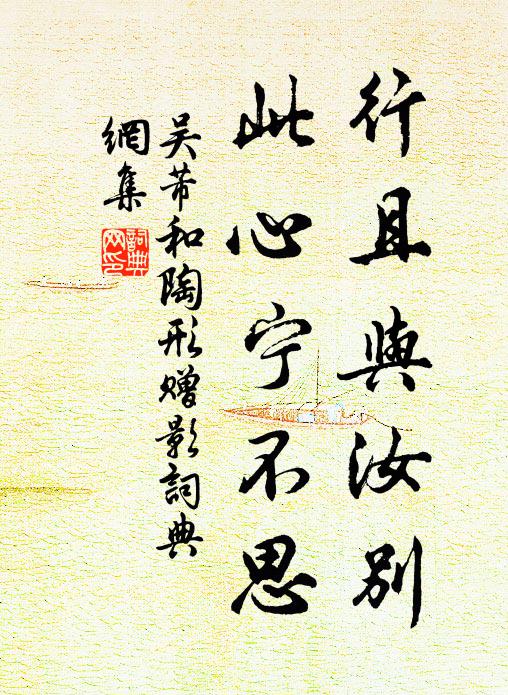 行且與汝別
此心宁不思
吴芾和陶形贈影詞典
網集
詞典
网印